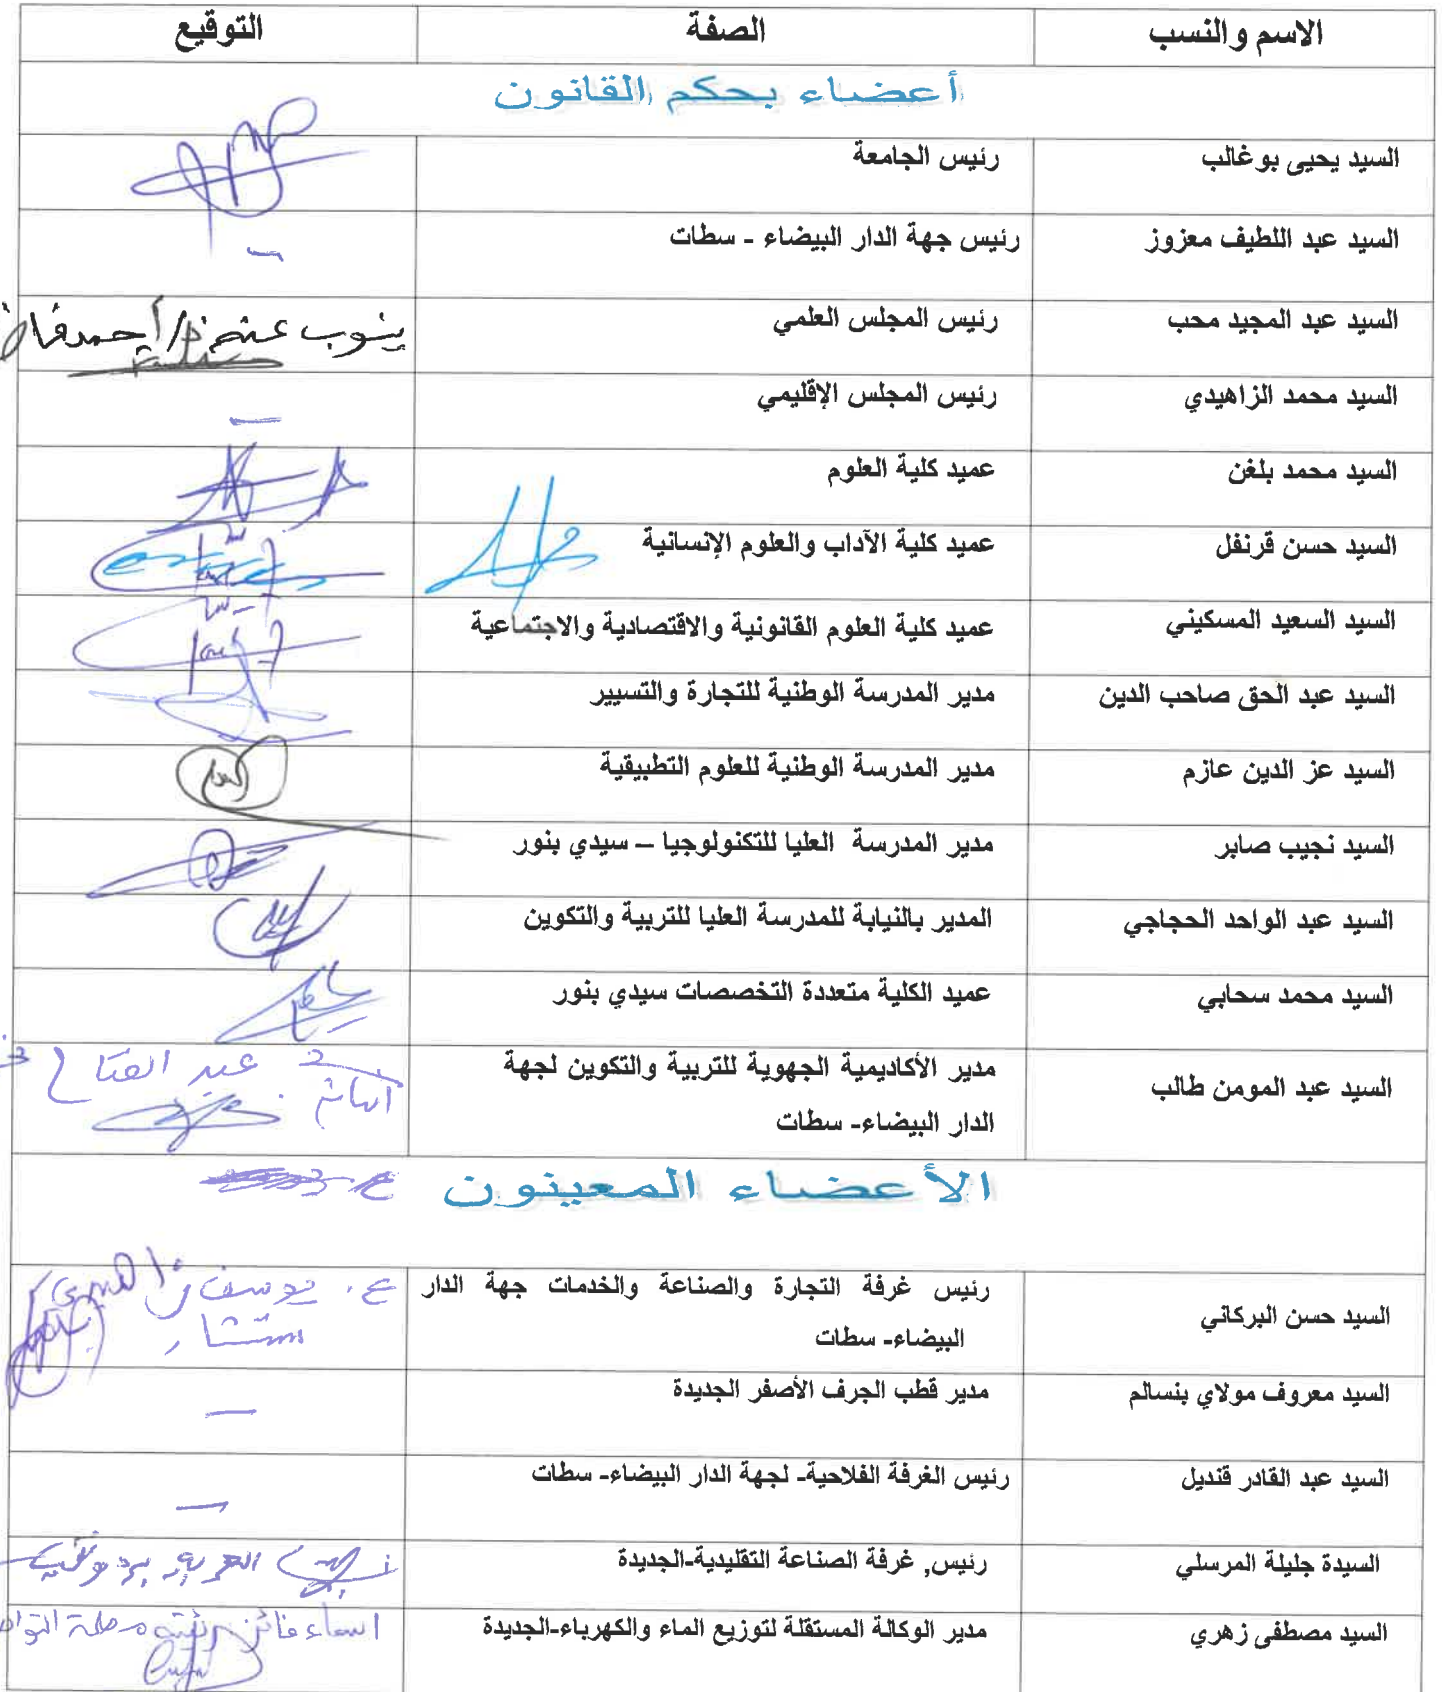 الاسم والنسب الصفة التوقيع
أعضاء بحكم القانون
السيد يحيى بوغالب رئيس الجامعة
السيد عبد اللطيف معزوز رئيس جهة الدار البيضاء - سطات
السيد عبد المجيد محب رئيس المجلس العلمي ينوب عنه
السيد محمد الزاهيدي رئيس المجلس الإقليمي
السيد محمد بلغن عميد كلية العلوم
السيد حسن قرنفل عميد كلية الآداب والعلوم الإنسانية
السيد السعيد المسكيني عميد كلية العلوم القانونية والاقتصادية والاجتماعية
السيد عبد الحق صاحب الدين مدير المدرسة الوطنية للتجارة والتسيير
السيد عز الدين عازم مدير المدرسة الوطنية للعلوم التطبيقية
السيد نجيب صابر مدير المدرسة العليا للتكنولوجيا – سيدي بنور
السيد عبد الواحد الحجاجي المدير بالنيابة للمدرسة العليا للتربية والتكوين
السيد محمد سحابي عميد الكلية متعددة التخصصات سيدي بنور
السيد عبد المومن طالب مدير الأكاديمية الجهوية للتربية والتكوين لجهة عبد الفتاح
الدار البيضاء- سطات
الأعضاء المعينون
السيد حسن البركاني رئيس غرفة التجارة والصناعة والخدمات جهة الدار
البيضاء- سطات مستشار
السيد معروف مولاي بنسالم مدير قطب الجرف الأصفر الجديدة
السيد عبد القادر قنديل رئيس الغرفة الفلاحية- لجهة الدار البيضاء- سطات
السيدة جليلة المرسلي رئيس, غرفة الصناعة التقليدية-الجديدة
السيد مصطفى زهري مدير الوكالة المستقلة لتوزيع الماء والكهرباء-الجديدة اسماء فائز